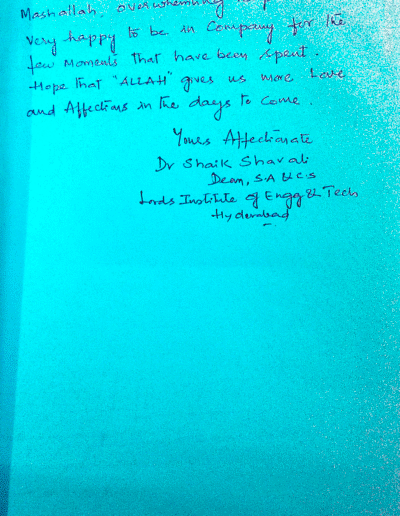 Mashallah, overwhelming
very happy to be in Company for the
few Moments that have been spent.
Hope that "ALLAH" gives us more Love
and Affections in the days to come.
Yours Affectionate
Dr Shaik Shavali
Dean, S.A &C.S
Lords Institute of Engg & Tech
Hyderabad